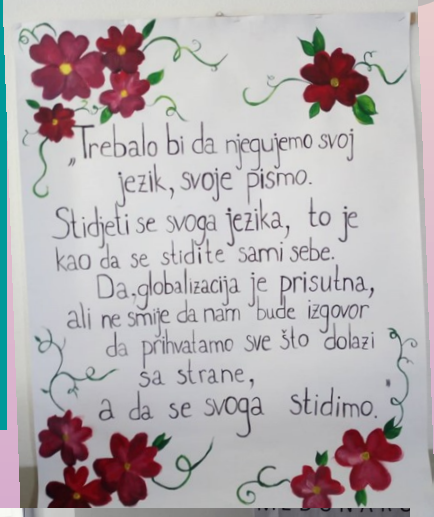 „Trebalo bi da njegujemo svoj
jezik, svoje pismo.
Stidjeti se svoga jezika, to je
kao da se stidite sami sebe.
Da, globalizacija je prisutna,
ali ne smije da nam bude izgovor
da prihvatamo sve što dolazi
sa strane,
a da se svoga stidimo.